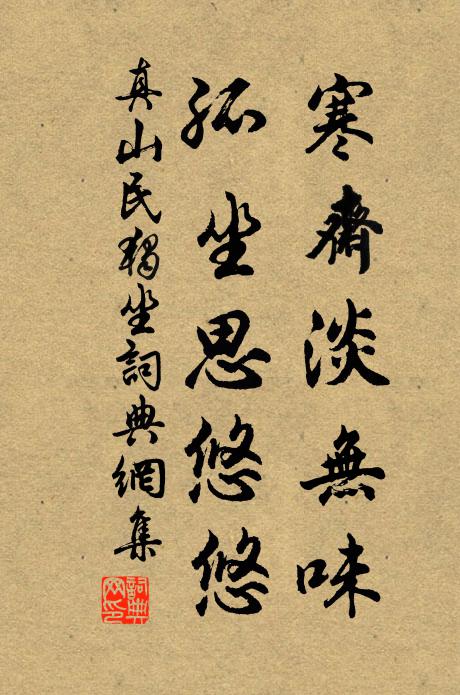 寒齋淡無味
孤坐思悠悠
真山民獨坐詞典網集
詞典網印